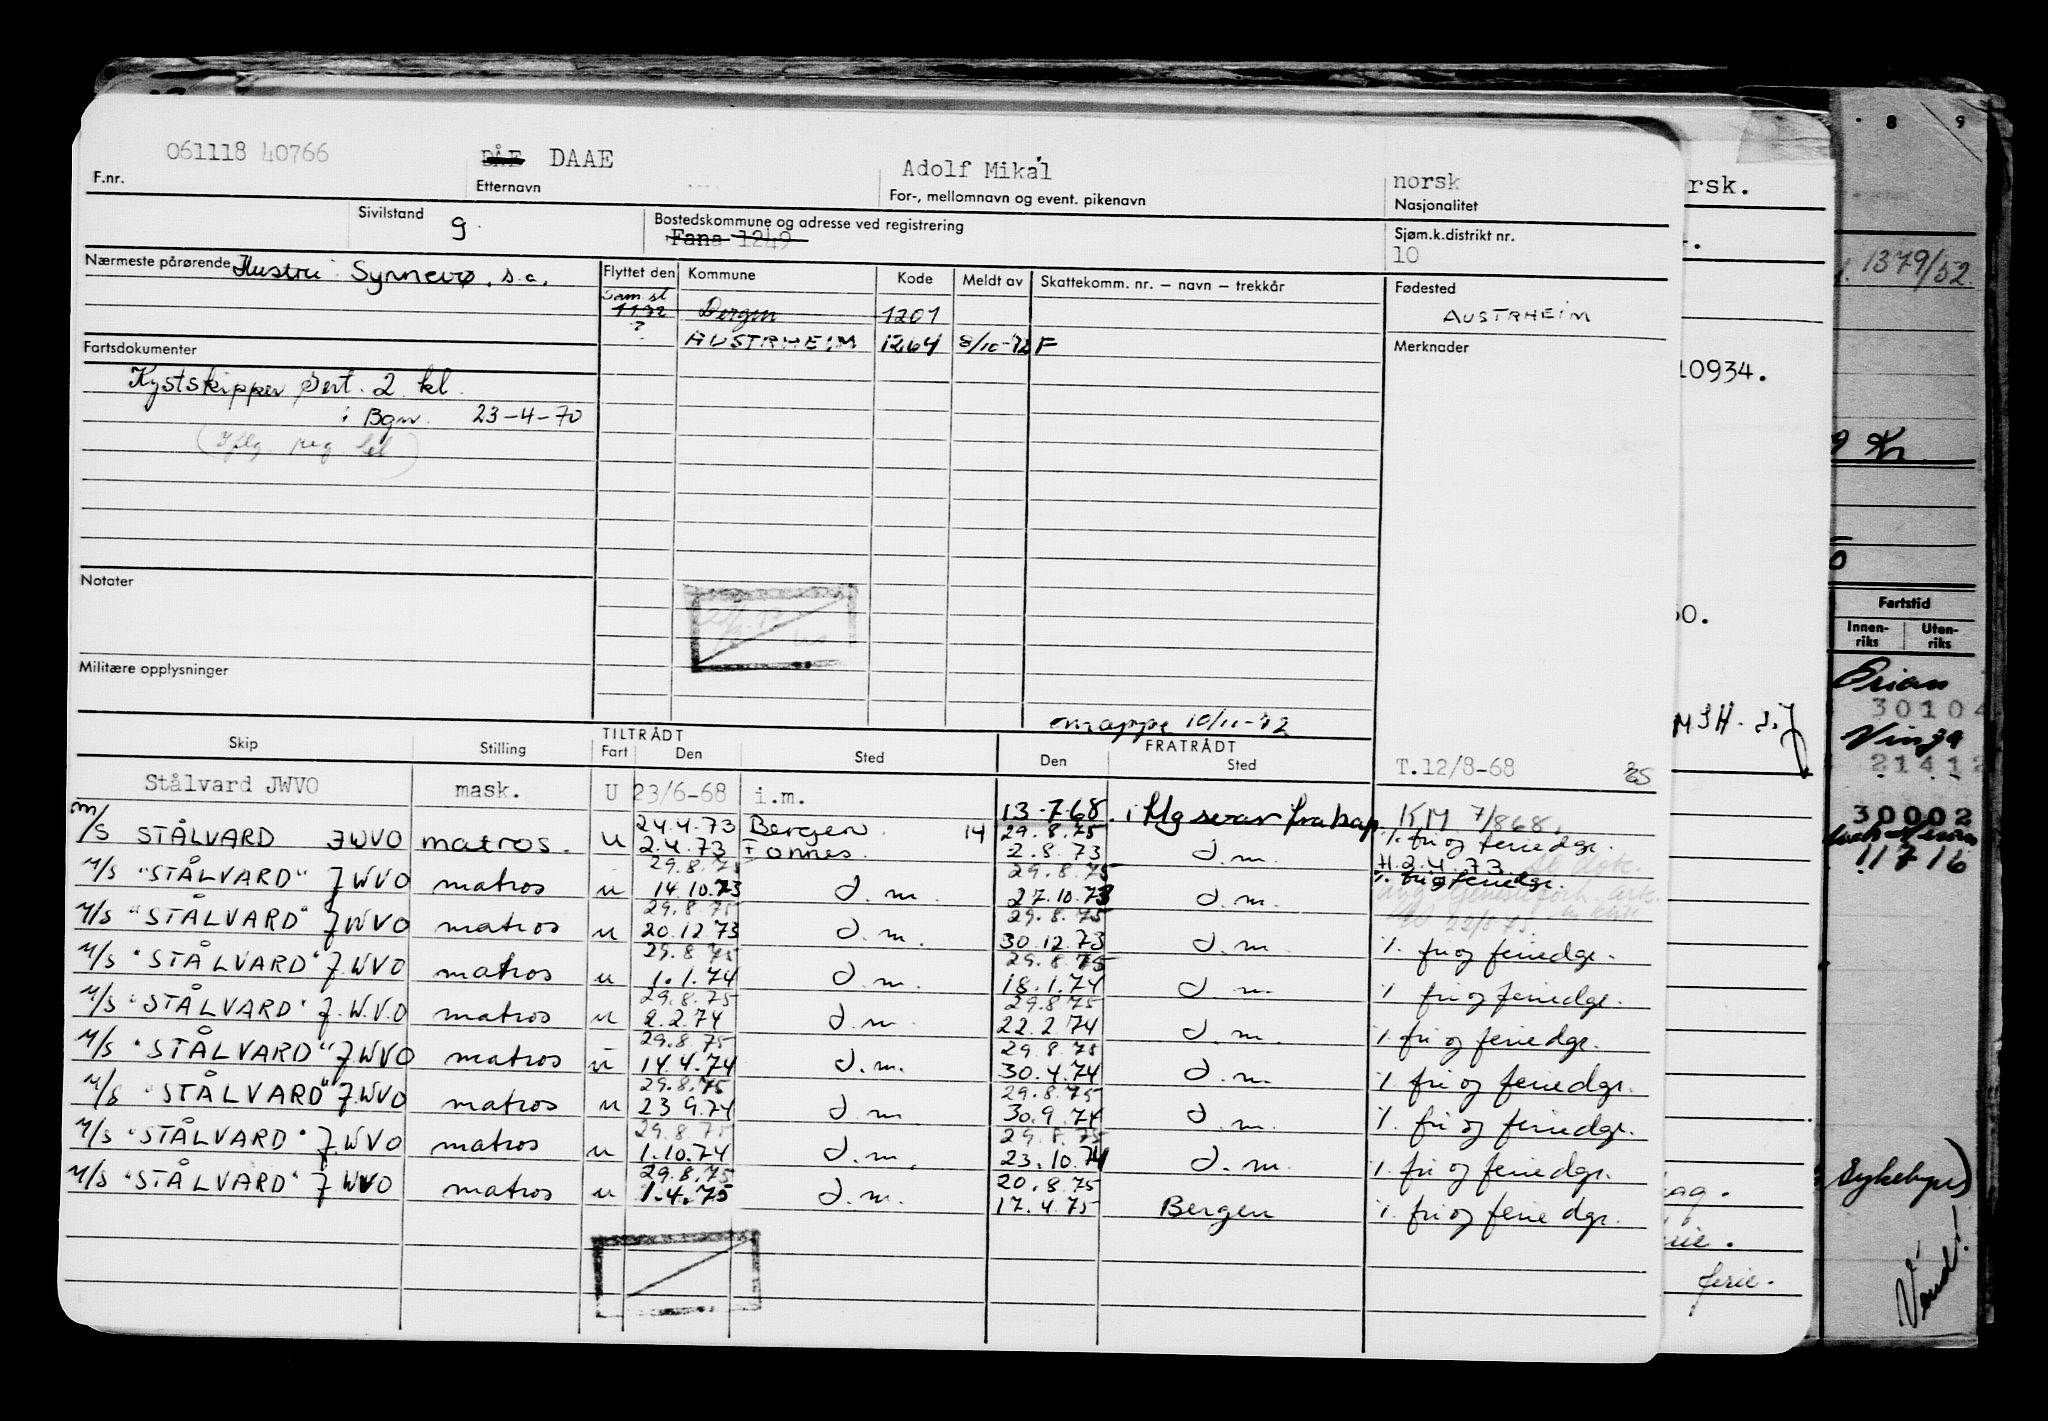 061118 40766 DÅE DAAE Adolf Mikal norsk
F.nr. Etternavn For-, mellomnavn og event. pikenavn Nasjonalitet
Sivilstand g. Bostedskommune og adresse ved registrering Sjøm.k.distrikt nr.
Fana 1249 10
Nærmeste pårørende Hustru: Synnevø. s.a. Flyttet den Kommune Kode Meldt av Skattekomm. nr. — navn — trekkår Fødested
1132 Bergen 1201 AUSTRHEIM
? AUSTRHEIM 1264 8/10-72 F
Fartsdokumenter Merknader
Kystskipper Sert. 2 kl.
i Bgn. 23-4-70
(Iflg. reg. kl)
Notater
Militære opplysninger
omappe 10/11-72
Skip Stilling TILTRÅDT Fart Den Sted FRATRÅDT Den Sted
T.12/8-68 25
Stålvard JWVO mask. U 23/6-68 i.m. 13-7-68. KM 7/868.
24.4.73 Bergen. 14 29.8.75 % fri og feriedgr.
m/s STÅLVARD JWVO matros. u 2.4.73 Fonnes. 2.8.73 I.m. H.2.4.73.
29.8.75 29.8.75 % fri og feriedgr.
M/S "STÅLVARD" JWVO matros u 14.10.73 I.m. 27.10.73 I.m.
29.8.75 29.8.75 22/8 75.
M/S "STÅLVARD" JWVO matros u 20.12.73 I.m. 30.12.73 I.m. % fri og feriedgr.
29.8.75 29.8.75
M/S "STÅLVARD" J.WVO matros u 1.1.74 I.m. 18.1.74 I.m. % fri og feriedgr.
29.8.75 29.8.75
M/S "STÅLVARD" J.W.V.O matros u 2.2.74 I.m. 22.2.74 I.m. % fri og feriedgr.
29.8.75 29.8.75
M/S "STÅLVARD" JWVO matros u 14.4.74 I.m. 30.4.74 I.m. % fri og feriedgr.
29.8.75 29.8.75
M/S "STÅLVARD" J.WVO matros u 23.9.74 I.m 30.9.74 I.m. % fri og feriedgr.
29.8.75 29.8.75
M/S "STÅLVARD" JWVO matros u 1.10.74 I.m. 23.10.74 I.m. % fri og feriedgr.
29.8.75 20.8.75
M/S "STÅLVARD" JWVO matros u 1.4.75 I.m. 17.4.75 Bergen % fri og feriedgr.
rsk.
10934.
50.
ferie.
8 9
1379/52.
Kr
Fartstid
Innen-riks Uten-riks
Orian
30104
Vinga
21412
30002
11716
Sykehus)
Vend!